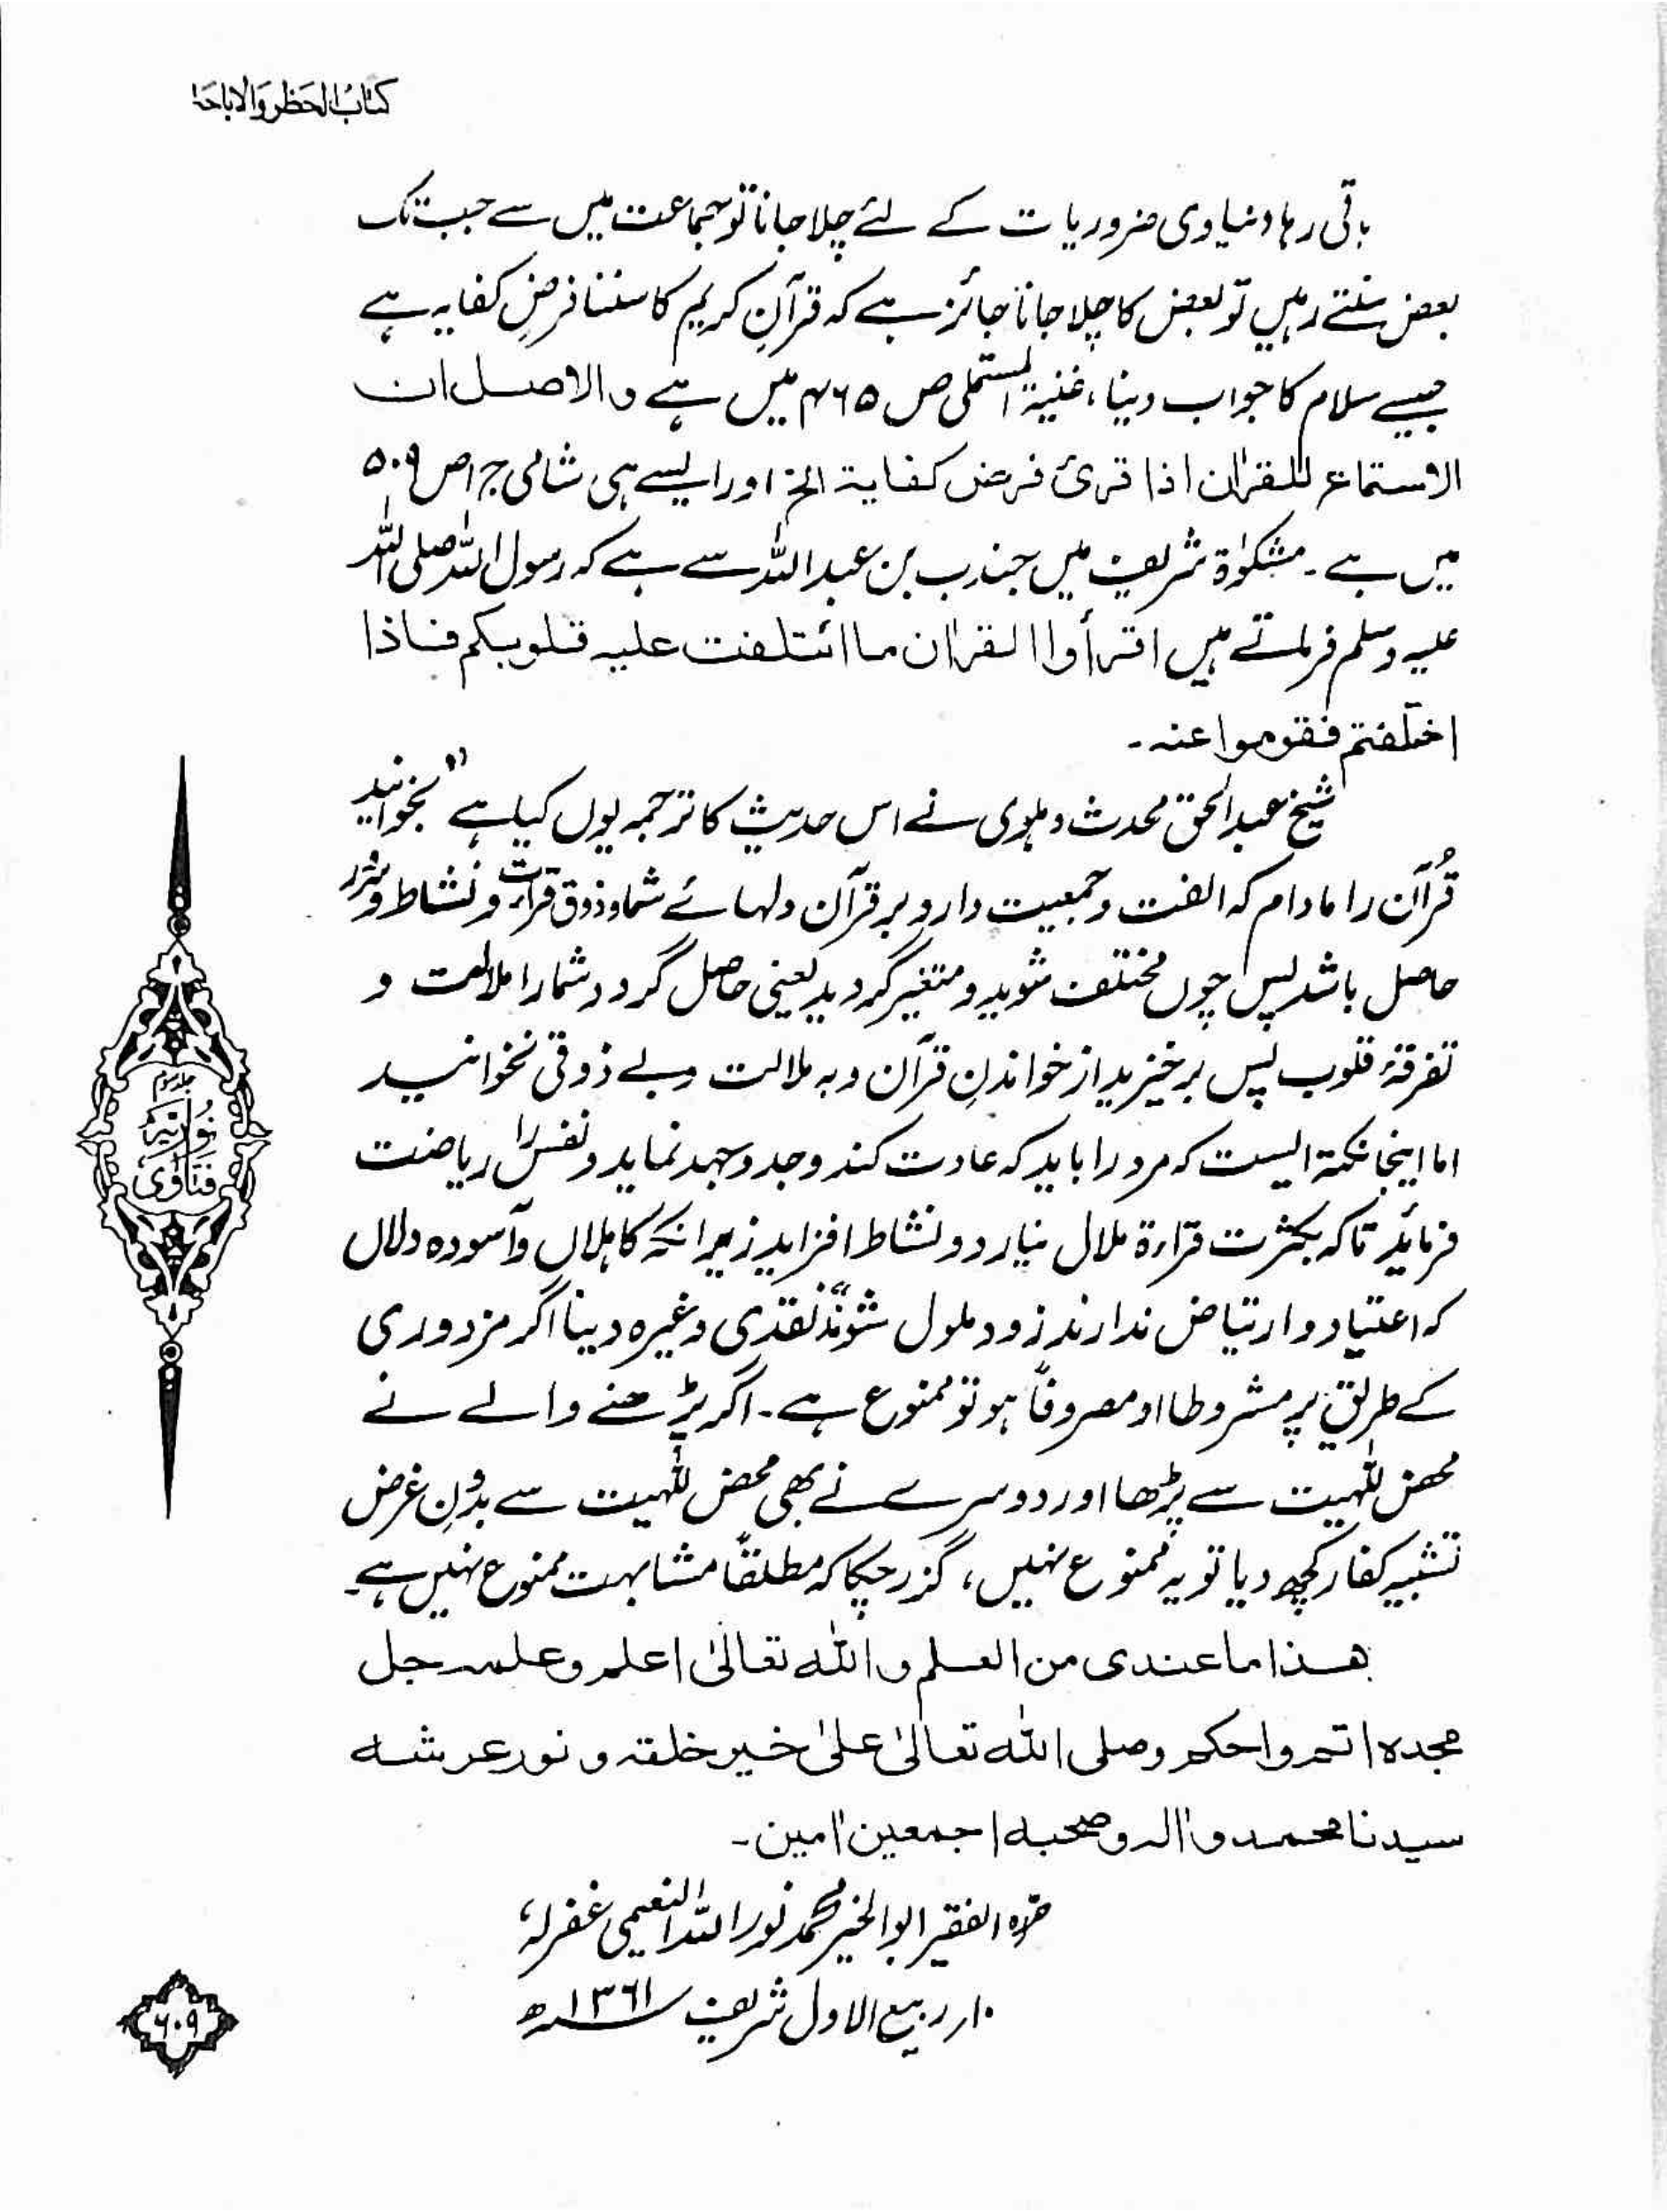 کتابُ الحَظر وَالاباحَۃ
باقی رہا دنیاوی ضروریات کے لئے چلا جانا تو جماعت میں سے جب تک
بعض سنتے رہیں تو بعض کا چلا جانا جائز ہے کہ قرآنِ کریم کا سننا فرضِ کفایہ ہے
جیسے سلام کا جواب دینا، غنیۃ المستملی ص ۴۶۵ میں ہے والاصل ان
الاستماع للقرآن اذا قرئ فرض کفایۃ الخ اور ایسے ہی شامی ج۱ ص ۵۰۹
میں ہے۔ مشکوٰۃ شریف میں جندب بن عبداللہ سے ہے کہ رسول اللہ صلی اللہ
علیہ وسلم فرماتے ہیں اقرأوا القرآن ما ائتلفت علیہ قلوبکم فاذا
اختلفتم فقوموا عنہ۔
شیخ عبدالحق محدث دہلوی نے اس حدیث کا ترجمہ یوں کیا ہے "بخوانید
قُرآن را مادام کہ الفت وجمعیت دارد بر قرآن دلہائے شما وذوق قرأت ونشاط و
حاصل باشد پس چوں مختلف شوید و متغیر گردید یعنی حاصل گردد شمارا ملالت و
تفرقۂ قلوب پس برخیزید از خواندنِ قرآن وبہ ملالت وبے ذوقی نخوانید
اما اینجا نکتۃ ایست کہ مرد را باید کہ عادت کند وجد وجہد نماید ونفس را ریاضت
فرمائد تا کہ بکثرت قراءۃ ملال نیارد ونشاط افزاید زیرانکہ کاہلاں وآسودہ دلاں
کہ اعتیاد و ارتیاض ندارند زود ملول شوند" نقدی وغیرہ دینا اگر مزدوری
کے طریق پر مشروطا او مصروفاً ہو تو ممنوع ہے۔ اگر پڑھنے والے نے
محض للہیت سے پڑھا اور دوسرے نے بھی محض للہیت سے بدونِ غرض
تشبیہ کفار کچھ دیا تو یہ ممنوع نہیں، گزر چکا کہ مطلقاً مشابہت ممنوع نہیں ہے۔
ھذا ما عندی من العلم واللہ تعالیٰ اعلم وعلمہ جل
مجدہ اتم واحکم وصلی اللہ تعالیٰ علیٰ خیر خلقہ ونور عرشہ
سیدنا محمد واٰلہ وصحبہ اجمعین اٰمین۔
حررہ الفقیر ابو الخیر محمد نور اللہ النعیمی غفرلہ،
۱۰ ر ربیع الاول شریف ۱۳۶۱ھ
جلد سوم
نُورِیَّہ
فَتَاوٰی
۶۰۹